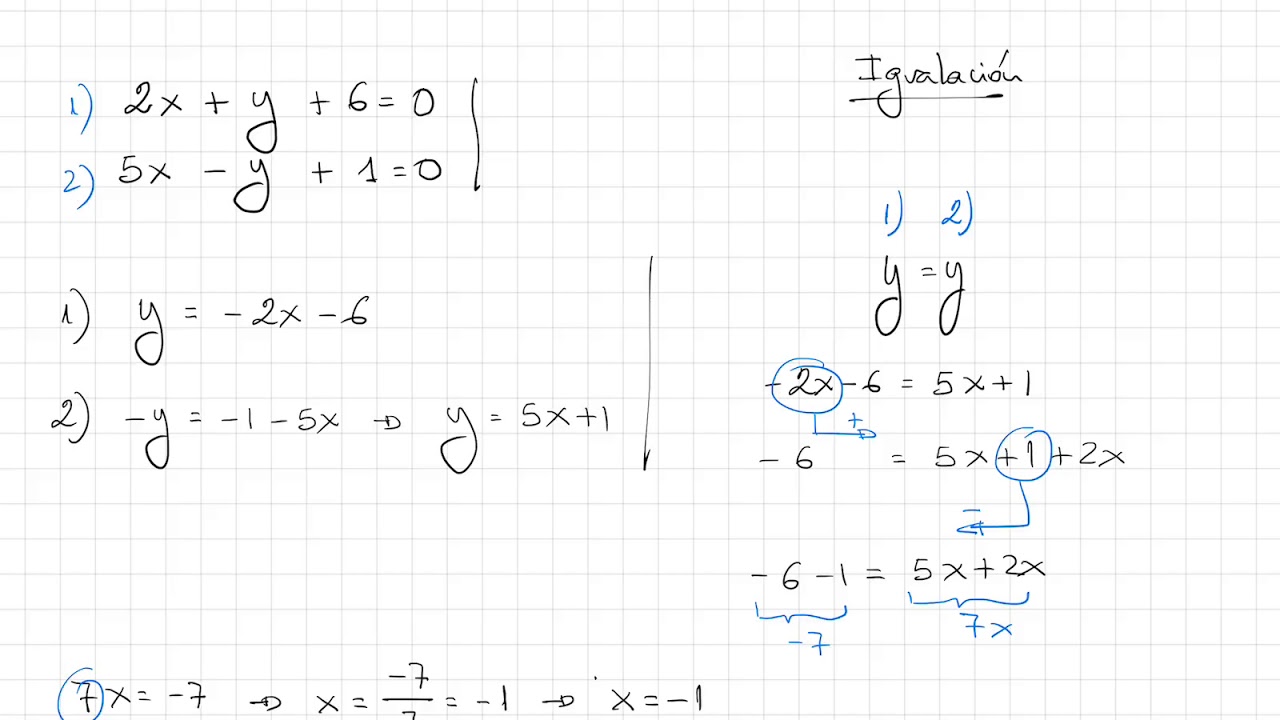 Igualación
1) 2x + y + 6 = 0
2) 5x - y + 1 = 0
1) y = -2x - 6
2) -y = -1 - 5x → y = 5x + 1
1) 2)
y = y
-2x - 6 = 5x + 1
+
-6 = 5x + 1 + 2x
-
-6 - 1 = 5x + 2x
-7 7x
7x = -7 → x = -7/7 = -1 → x = -1